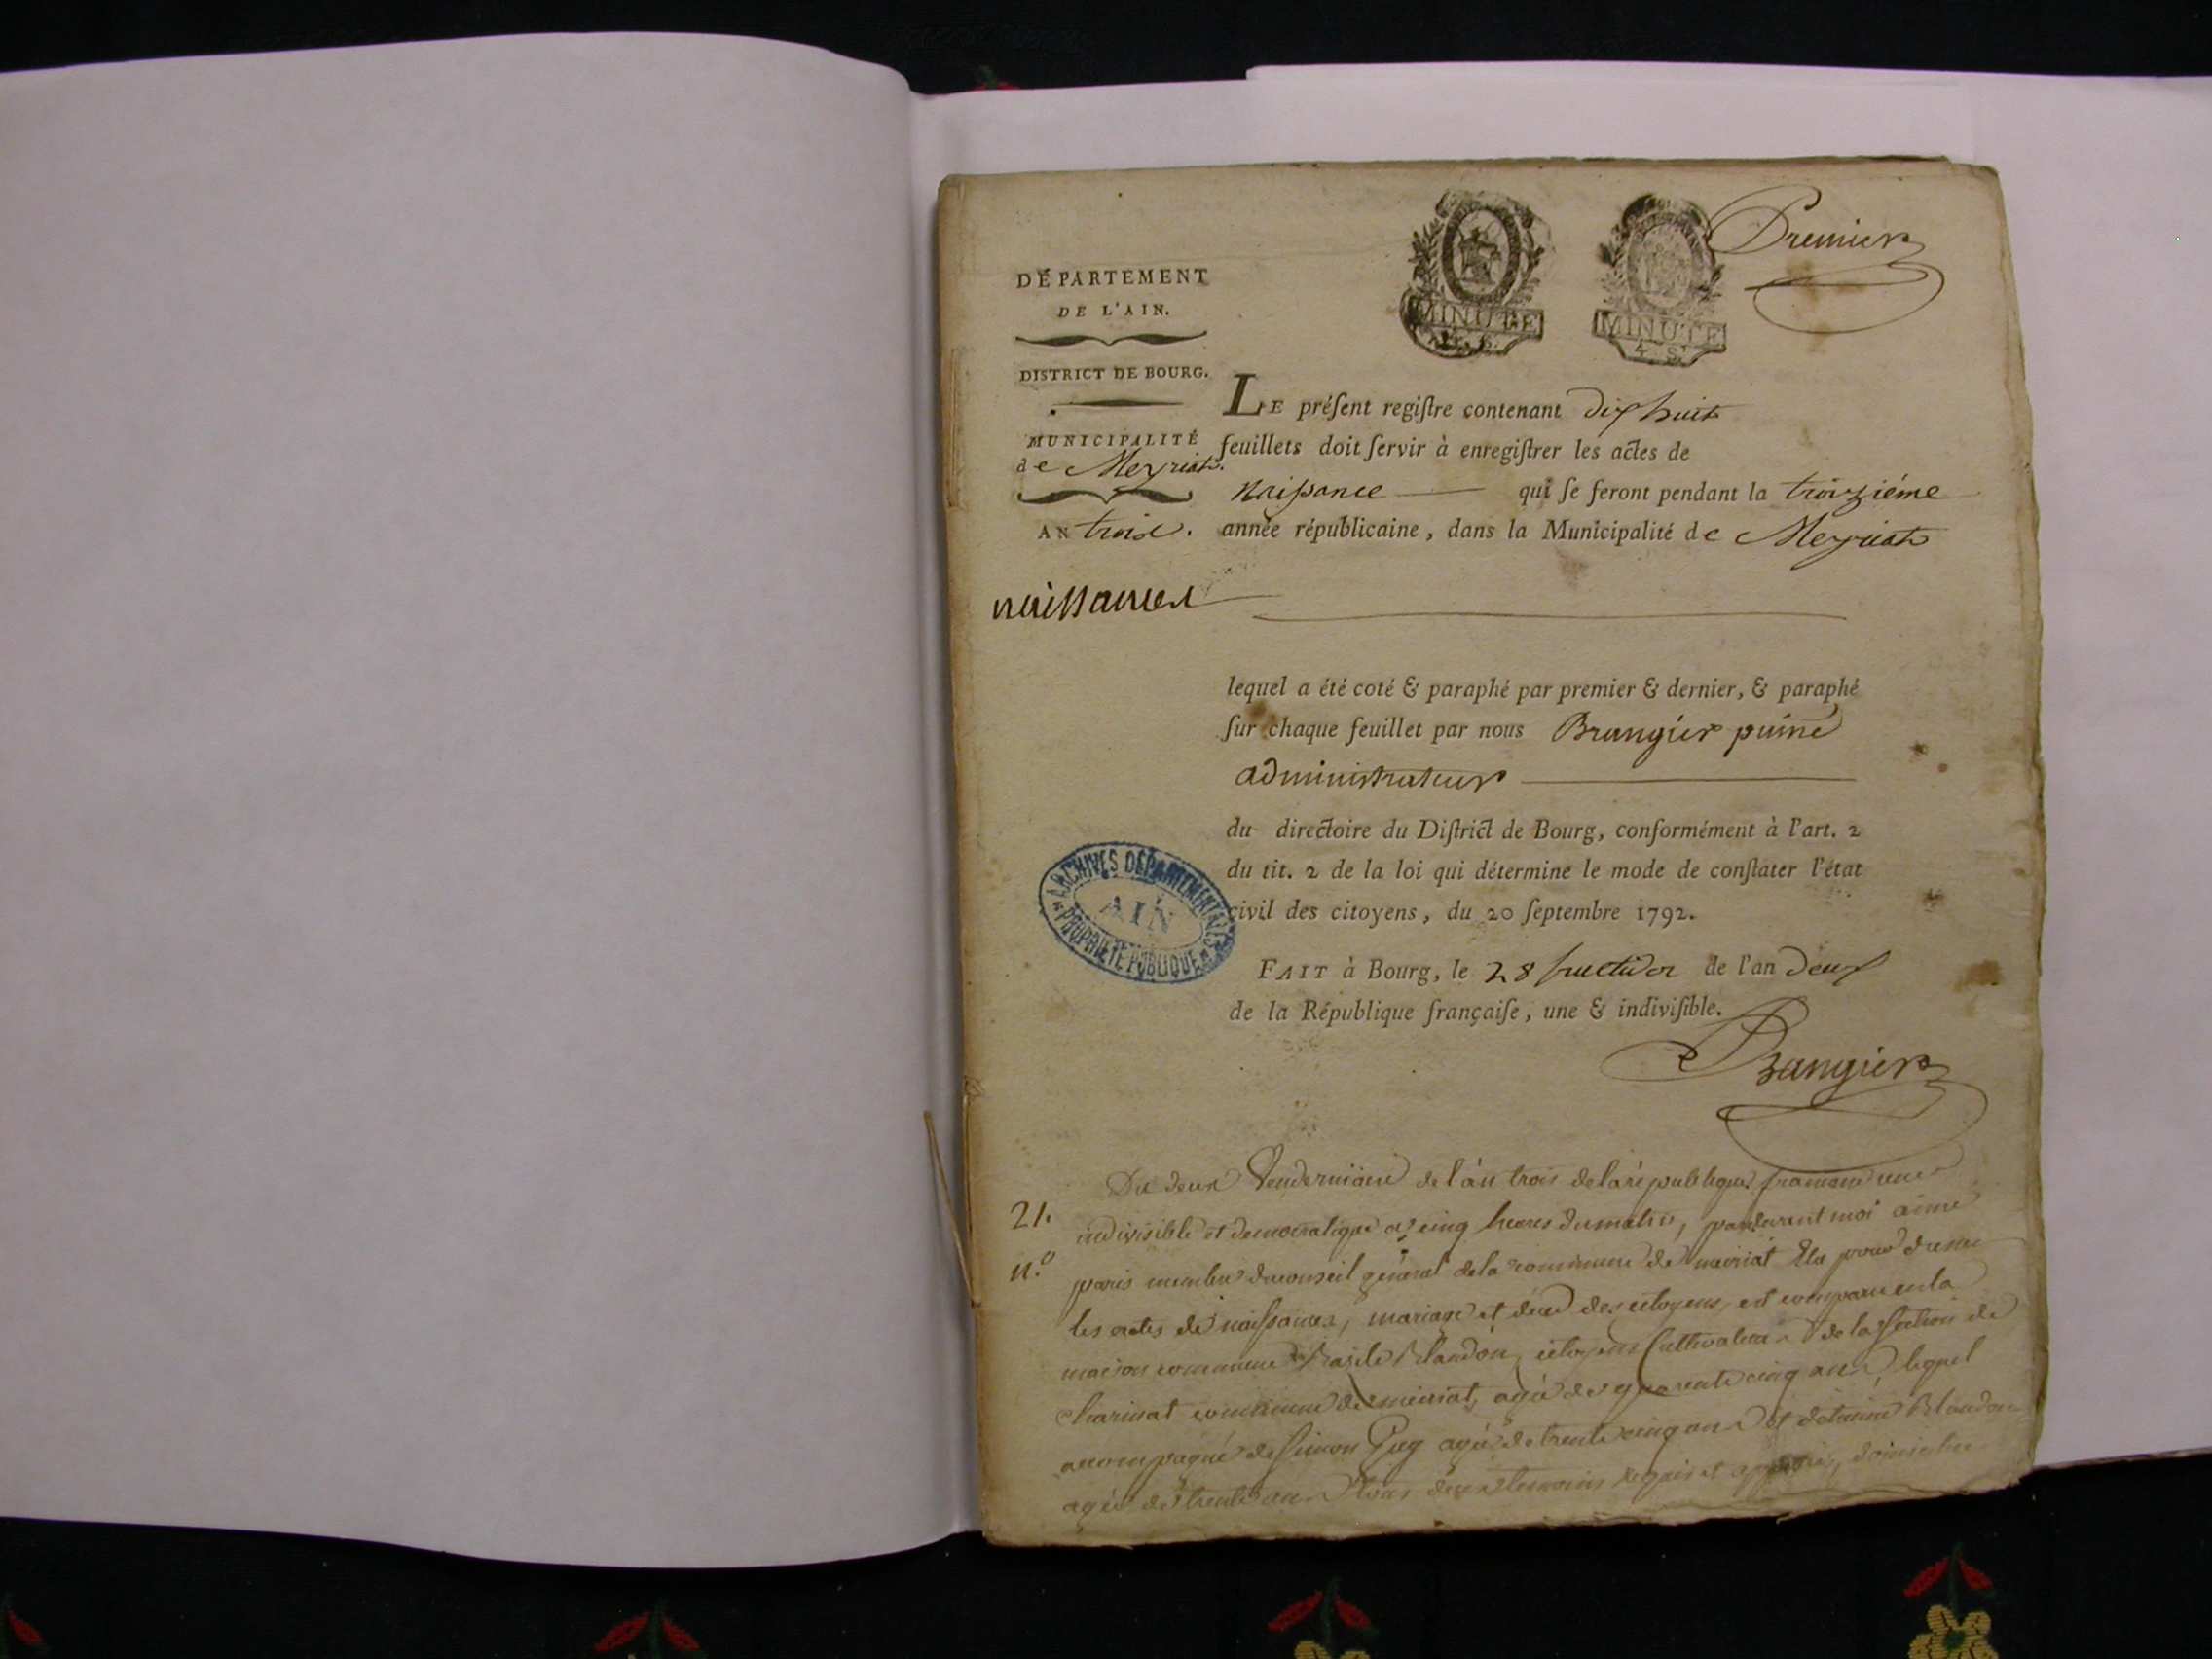 Premier
MINUTE
MINUTE
4 S.
DÉPARTEMENT
DE L'AIN.
DISTRICT DE BOURG.
MUNICIPALITÉ
de Meyriat.
AN trois.
naissances
LE préſent regiſtre contenant dix huit
feuillets doit ſervir à enregiſtrer les actes de
naissance qui ſe feront pendant la troizième
année républicaine, dans la Municipalité de Meyriat
lequel a été coté & paraphé par premier & dernier, & paraphé
ſur chaque feuillet par nous Brangier puiné
administrateur
du directoire du Diſtrict de Bourg, conformément à l'art. 2
du tit. 2 de la loi qui détermine le mode de conſtater l'état
civil des citoyens, du 20 ſeptembre 1792.
ARCHIVES DÉPARTEMENTALES
AIN
PROPRIÉTÉ PUBLIQUE
FAIT à Bourg, le 28 fructidor de l'an deux
de la République françaiſe, une & indiviſible.
Brangier
21.
n.º
Du deux Vendemiaire de l'an trois de la république francaise une
indivisible et democratique a cinq heures du matin, pardevant moi aimé
paris membre du conseil general de la commune de meiriat élu pour
les actes de naissances, mariage et deces des citoyens, est comparu en la
maison commune Basile Blandon, citoyens Cultivateur de la section de
charinat commune de meiriat, agé de quarente cinq ans, lequel
accompagné de Simon Guy agé de trente cinq ans et Blandon
agé de trente ans tous deux temoins requis et